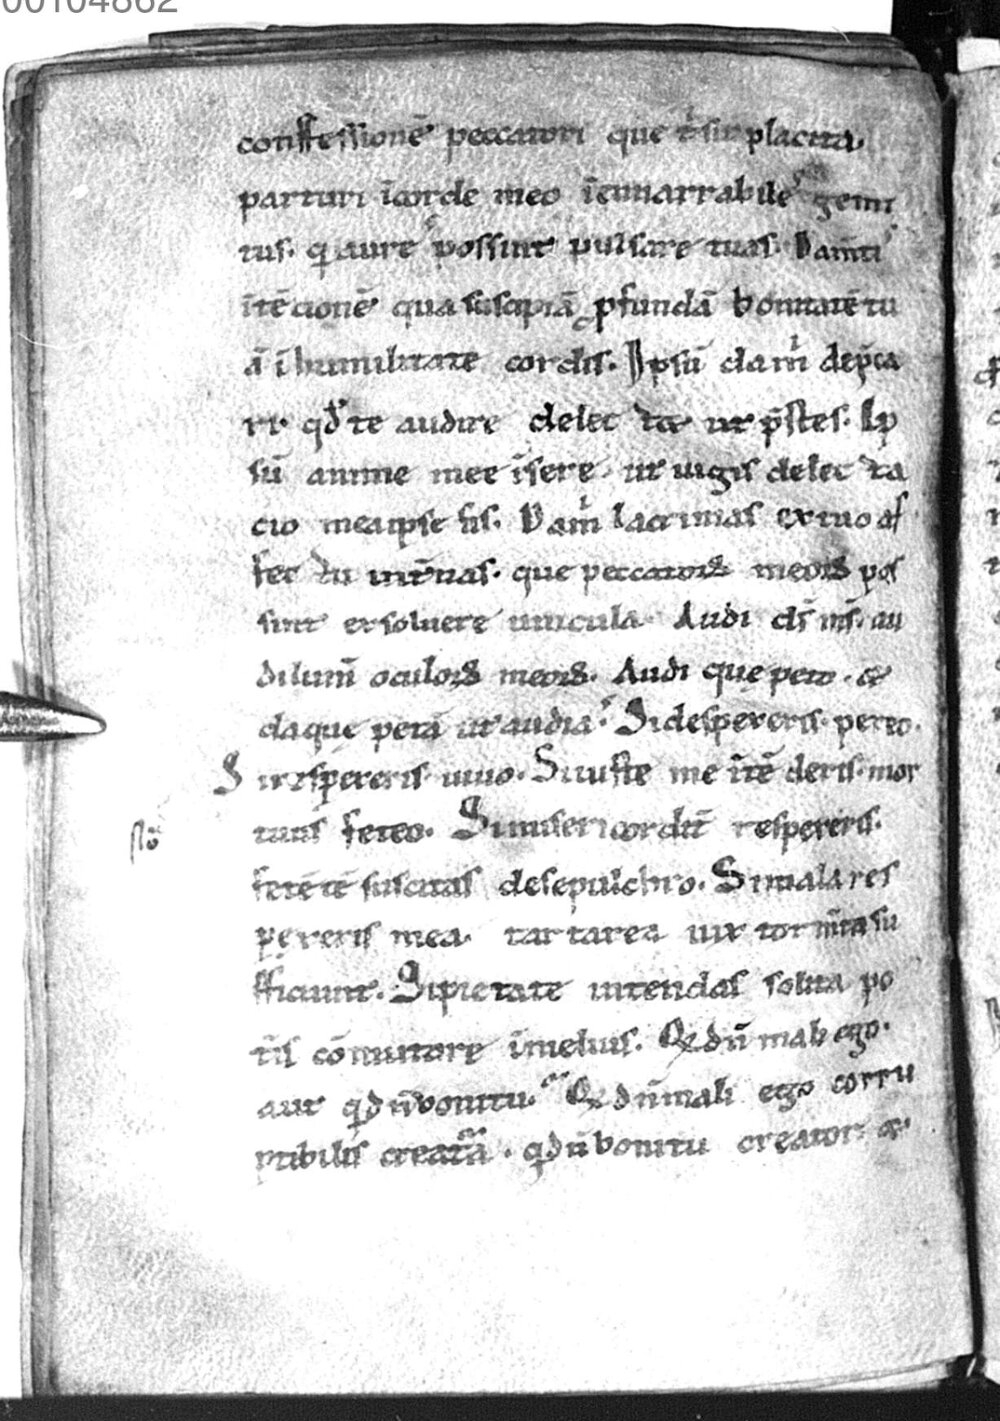 00104862
conffessionē peccatori que tͥ sint placita.
parturi īcorde meo īennarrabile gemi
tus. q aure possint pulsare tuas. Da mͥ
ītēcionē qua suscipiā pfundā bonitatē tu
ā ī humilitate cordis. Ipsū da mͥ dep̄ca
ri. qđ te audire delec ta ut p̄stes. Ip
sū anime mee īsere. ut uigis delec ta
cio mea ipse sis. Da mͥ lacrimas ex tuo af
fec tu int̄nas. que peccatoꝝ meoꝝ pos
sint exsoluere uincula. Audi ds̄ ms̄. au
di lum̄ oculoꝝ meoꝝ. Audi que peto. &
da que petā ut audia. Si despereris. pereo.
Si respereris. uiuo. Si iuste me ītēderis. mor
tuus feteo. Si misericordit̄ respereris.
fetētē suscitas de sepulchro. Si mala res
pereris mea. tartarea uix tormīta su
fficiunt. Si pietate intendas solita po
tis cōmutare ī melius. Qđ ū mali ego.
aut qđ ū boni tu. Qđ ū mali ego corru
ptibilis creatā. qđ ū boni tu creator. &